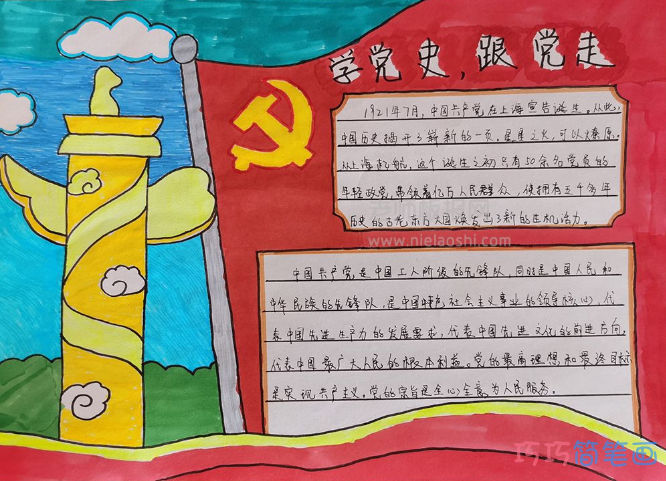 学党史,跟党走
1921年7月,中国共产党在上海宣告诞生。从此,
中国历史揭开了崭新的一页。星星之火,可以燎原。
从上海起航,这个诞生之初只有50余名党员的
年轻政党,带领着亿万人民群众,使拥有五千多年
历史的古老东方大国焕发出了新的生机活力。
www.nielaoshi.com
中国共产党是中国工人阶级的先锋队,同时是中国人民和
中华民族的先锋队,是中国特色社会主义事业的领导核心,代
表中国先进生产力的发展要求,代表中国先进文化的前进方向,
代表中国最广大人民的根本利益。党的最高理想和最终目标
是实现共产主义。党的宗旨是全心全意为人民服务。
巧巧简笔画